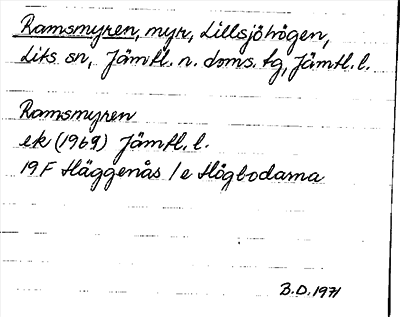 Ramsmyren, myr, Lillsjöhögen,
Liks sn, Jämtl. n. doms. tg, Jämtl. l.
Ramsmyren
ek (1969) Jämtl. l.
19 F Häggenås / e Högbodarna
B.D. 1971